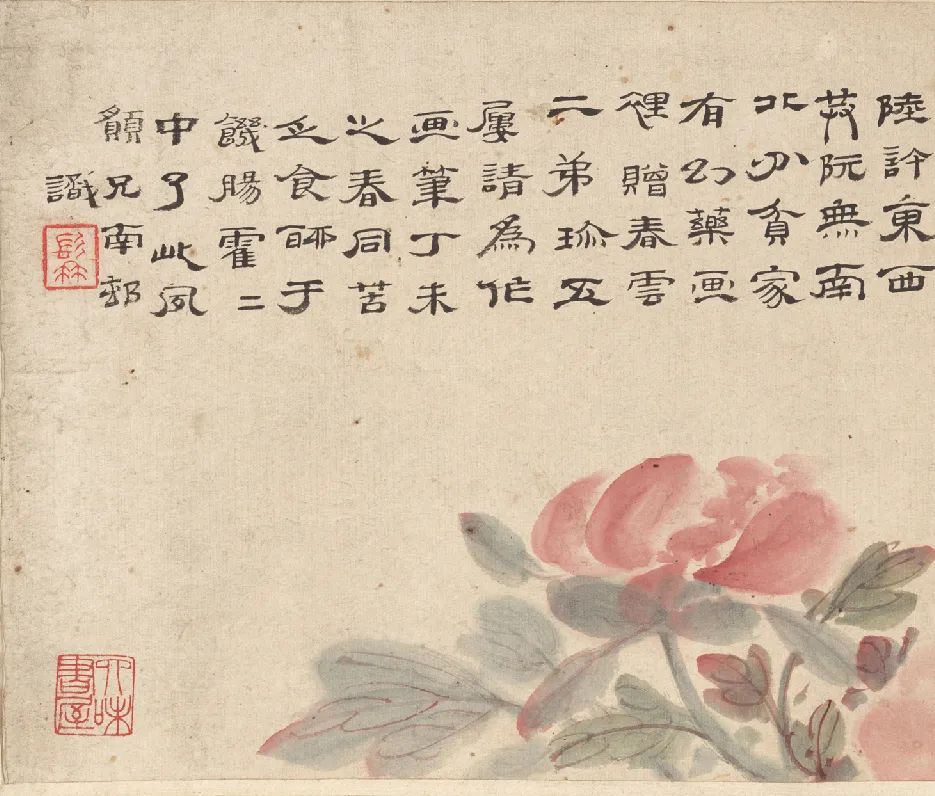 陸許東西
阮無南
北分貧家
有幻藥画
裡贈春雲
二弟珎五
屢請為作
画筆丁未
之春同苦
乞食師于
饑腸霍二
中了此夙
願兄南邨
識
味書屋